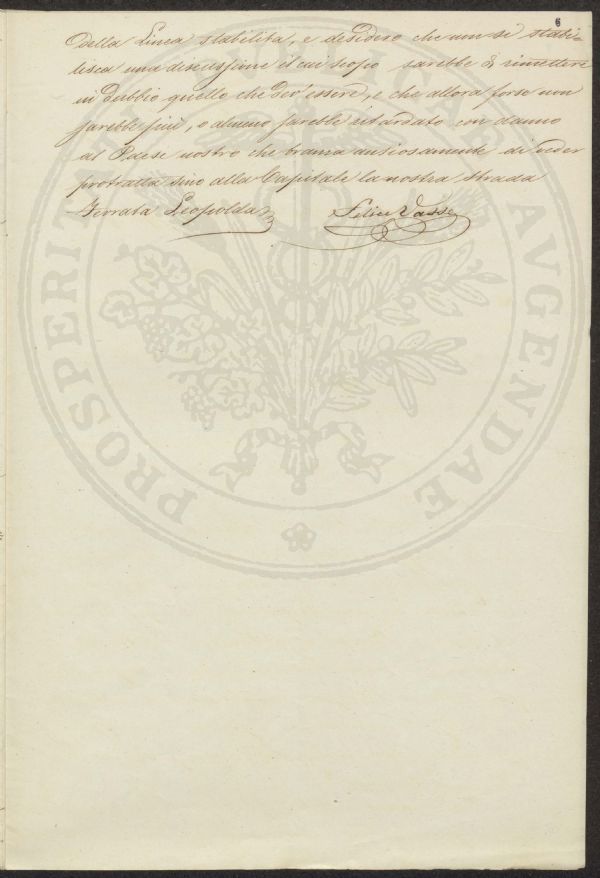 6
della Linea stabilita, e desidero che non si stabi-
lisca una discussione il cui scopo sarebbe di rimettere
in dubbio quello che dev'essere, e che allora forse non
sarebbe più, o almeno sarebbe ritardato con danno
al Paese nostro che brama ansiosamente di veder
protratta sino alla Capitale la nostra Strada
Ferrata Leopolda
Felice Vasse
PROSPERITATI PUBLICAE AVGENDAE